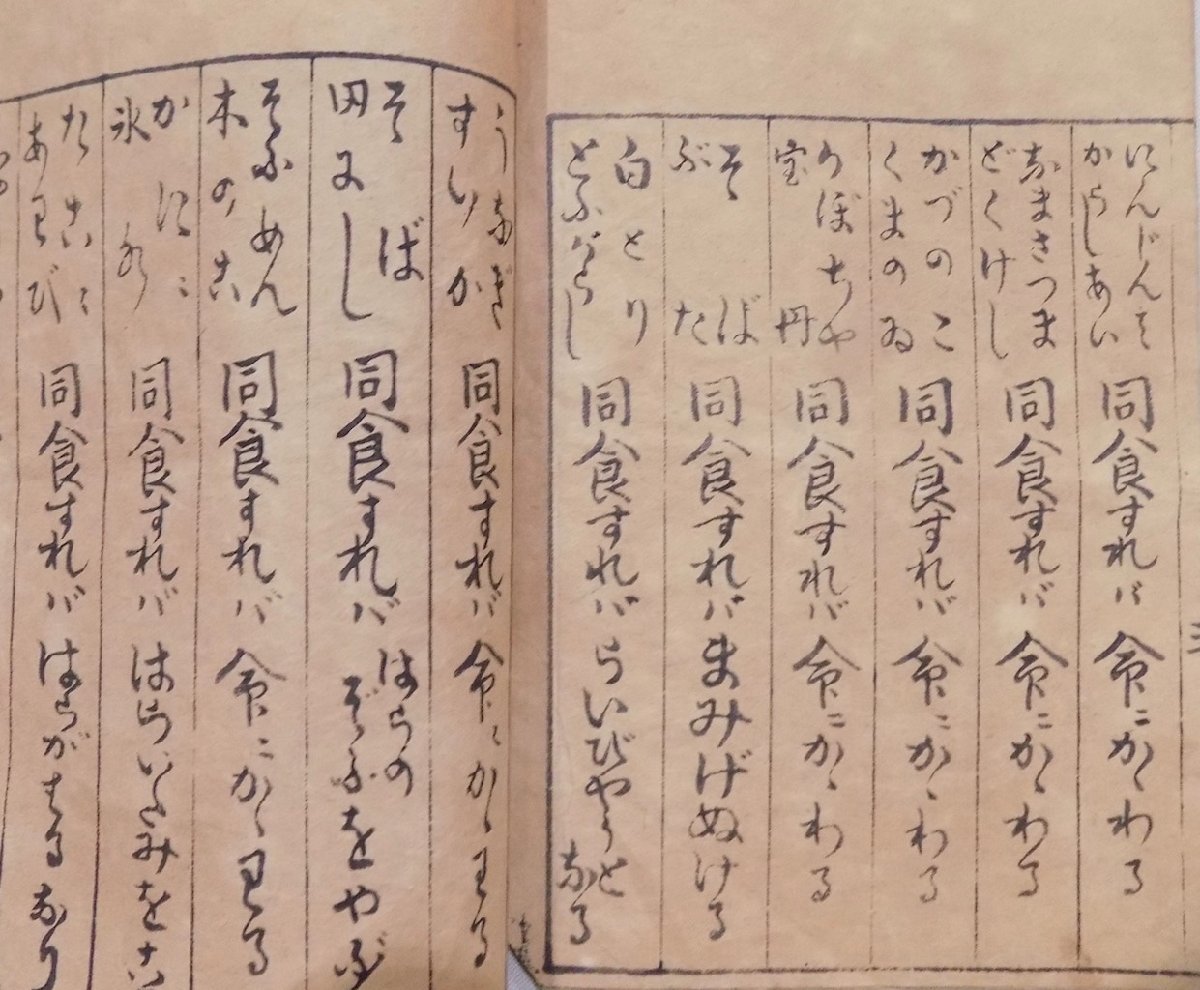 にんじん
からしあい
同食すれバ 命ニかゝわる
なまさつま
どくけし
同食すれバ 命ニかゝわる
かづのこ
くまのゐ
同食すれバ 命ニかゝわる
かぼちや
宝丹
同食すれバ 命ニかゝわる
そば
ぶた
同食すれバ まみげぬける
白とり
とふがらし
同食すれバ らいびやうと
なる
うなぎ
すいか
同食すれバ 命ニかゝわる
そば
田にし
同食すれバ はらの
ぞふをやぶ
そふめん
木のこ
同食すれバ 命ニかゝわる
かにニ
氷水
同食すれバ はらいたみをこ
たこニ
あわび
同食すれバ はらがはるなり